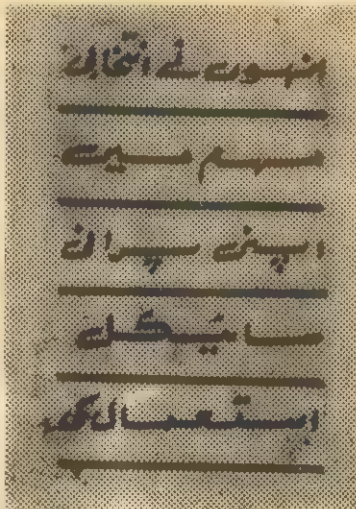 انہوں نے انتخابی
مہم میں
اپنی پرانی
سائیکل
استعمال کی۔